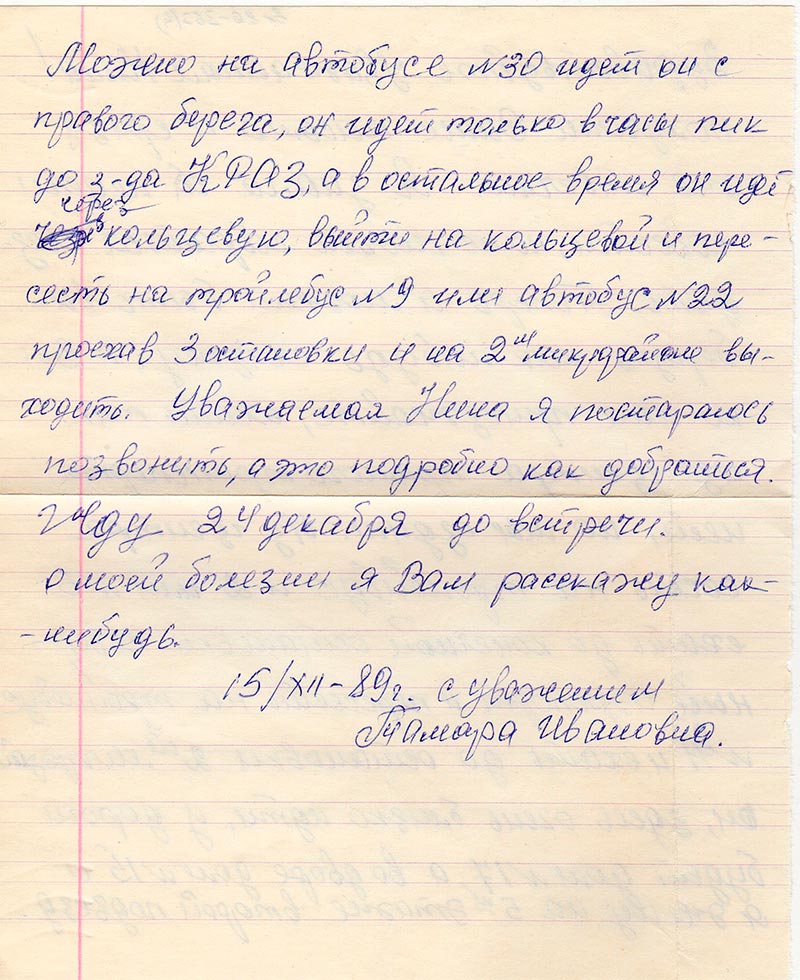 Можно на автобусе №30 идет он с
правого берега, он идет только в часы пик
до з-да КРАЗ, а в остальное время он идет
через
кольцевую, выйти на кольцевой и пере-
сесть на тройлебус №9 или автобус №22
проехав 3 остановки и на 2ом микрорайоне вы-
ходить. Уважаемая Нина я постараюсь
позвонить, а это подробно как добраться.
Жду 24 декабря до встречи.
о моей болезни я Вам расскажу как-
-нибудь.
15/XII-89г. с уважением
Тамара Ивановна.